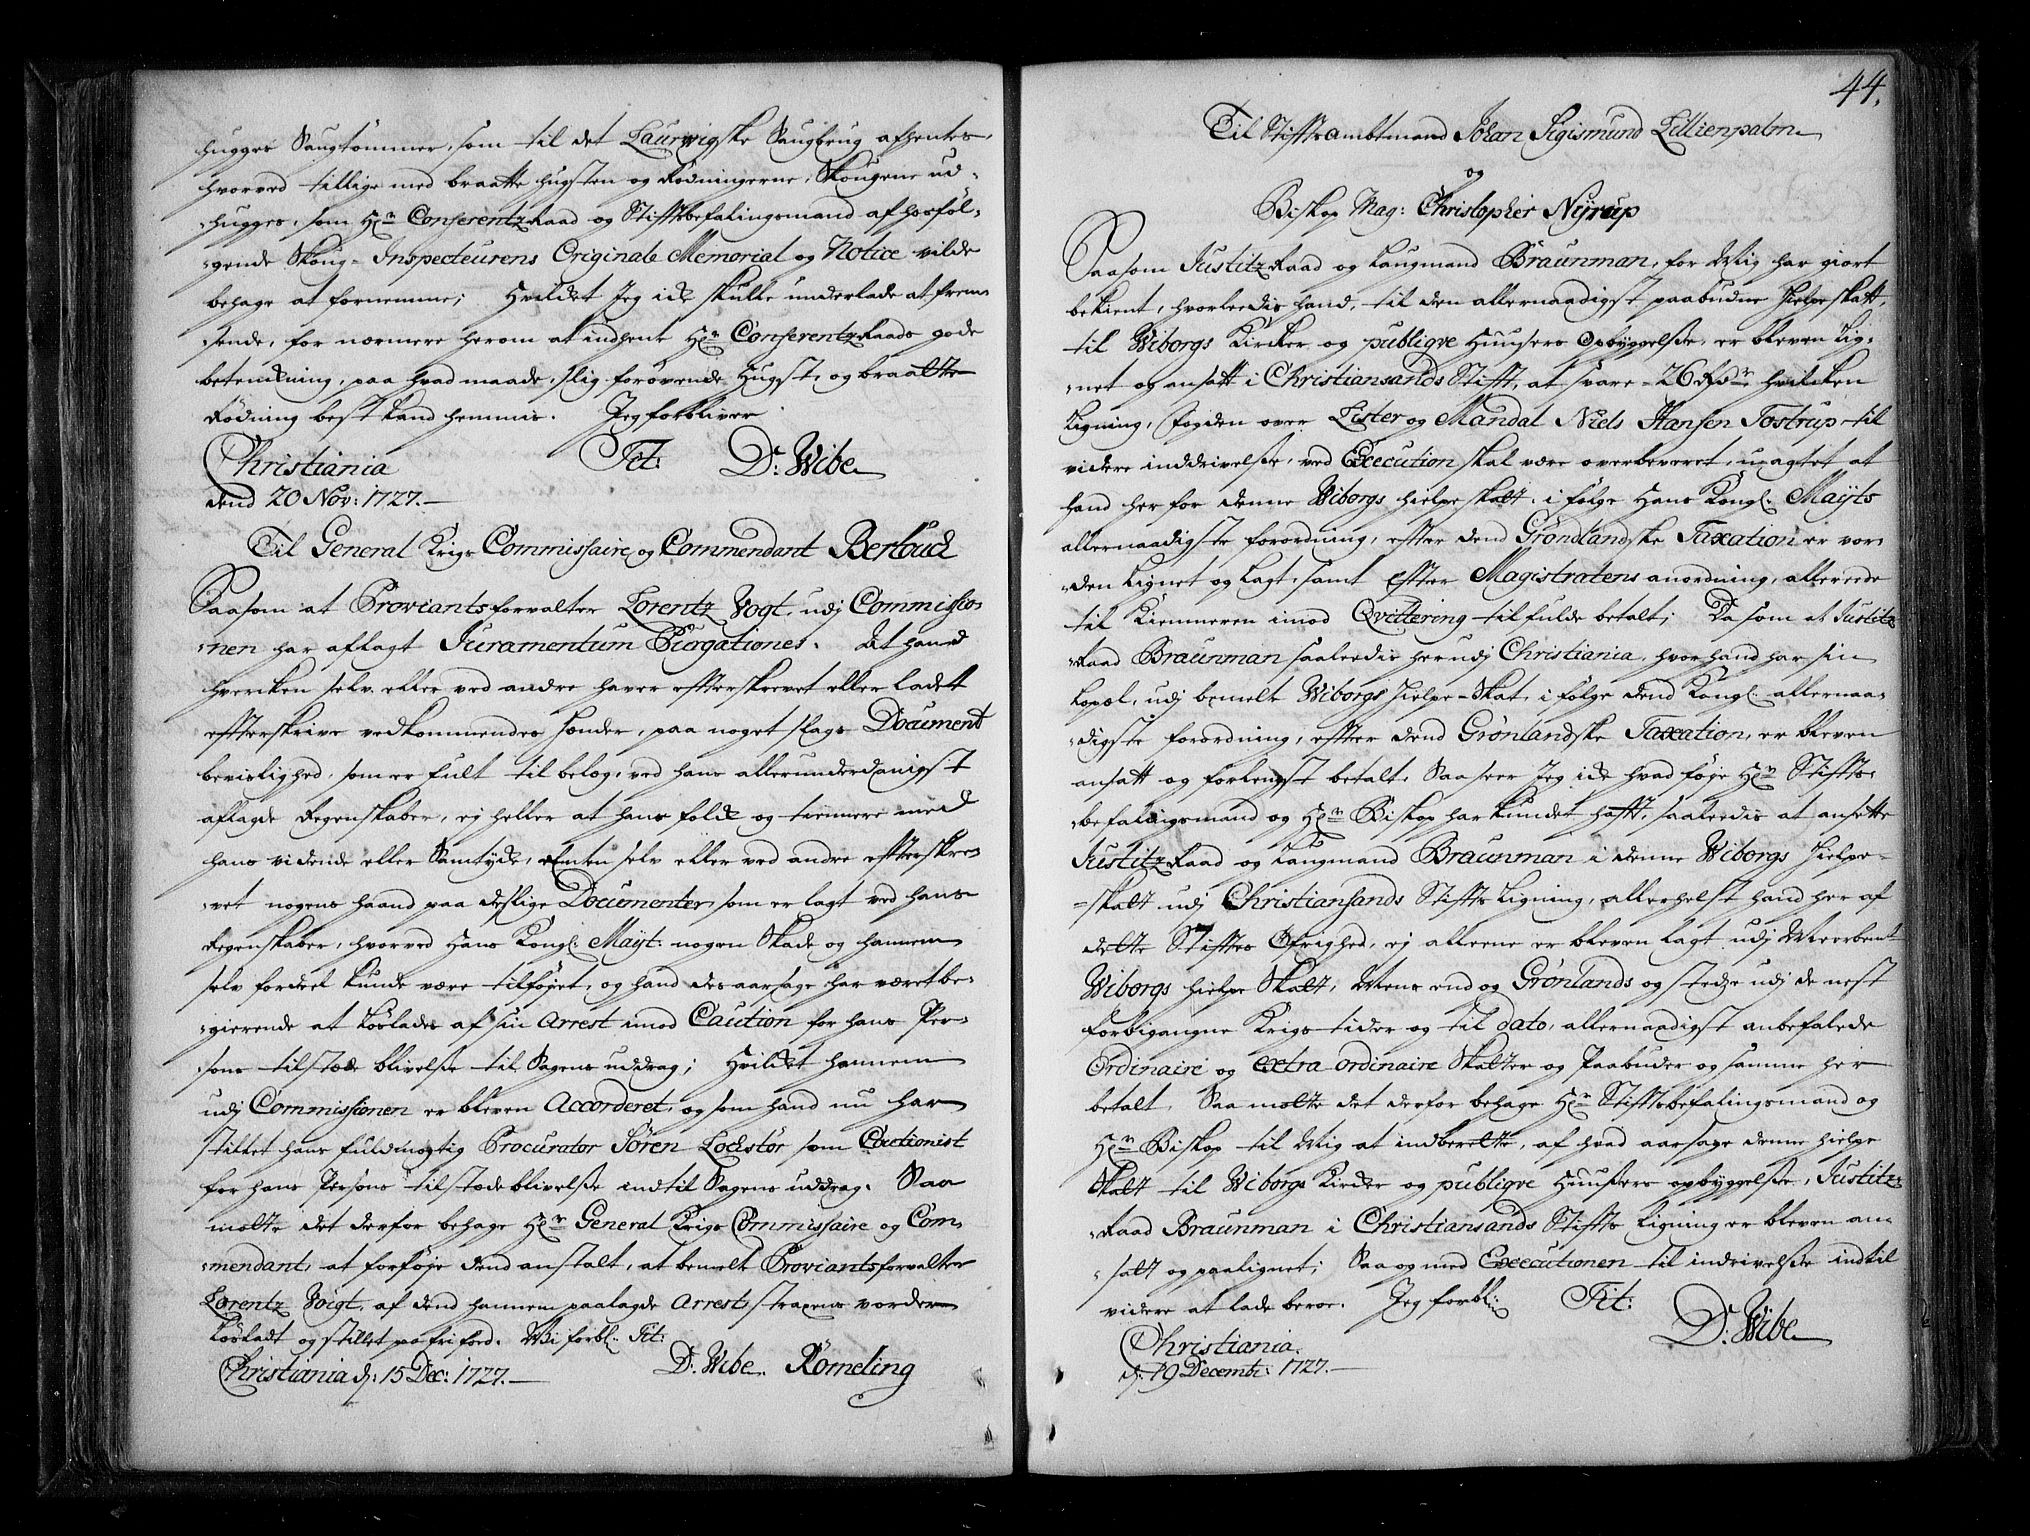 hugges Saugtømmer, som til det Laurwigske Saugbrug afhentes,
hvorved tillige med braatte hugsten og Rødningerne, Skougene ud-
-hugges, som Hr: ConferentzRaad og Stiftsbefalingsmand af hosføl-
-gende Skoug-Inspecteurens Originale Memorial og Notice vilde
behage at fornemme; Hvilcket Jeg icke skulle underlade at frem-
-sende, for nærmere herom at indhente Hr: ConferentzRaads gode
betenckning, paa hvad maade, slig forøvende Hugst, og braatte
Rødning best kand hemmis. Jeg forbliver
Christiania Tit: D: Wibe
dend 20 Nov: 1727.
Til General Krigs Commissaire og Commendant Bertouch
Saasom at Proviantsforvalter Lorentz Vogt, udj Commissio-
-nen har aflagt Juramentum Purgationes. At hand
hvercken selv eller ved andre haver efterskrevet eller ladet
efterskrive vedkommendes hænder, paa noget slags Document
bevislighed, som er fult til belæg, ved hans allerunderdanigst
aflagde Regenskaber, ej heller at hans folck og tiennere med
hans vidende eller Samtycke, enten selv eller ved andre efterskre-
-vet nogens haand paa deslige Documenter, som er lagt ved hans
Regenskaber, hvorved Hans Kongl: Mayt: nogen Skade og hannem
selv fordeel kunde være tilføjet, og hand des aarsage har været be-
-gierende at løslades af sin Arrest imod Caution for hans Per-
-sons tilstæde blivelse til Sagens uddrag; Hvilcket hannem
udj Commissionen er bleven Accorderet, og som hand nu har
stillet hans fuldmægtig Procurator Søren Lochstør som Cautionist
for hans Persons tilstædeblivelse indtil Sagens uddrag. Saa
motte det derfor behage Hr: General Krigs Commissaire og Com-
-mendant, at forføje dend anstalt, at bemelt Proviantsforvalter
Lorentz Voigt, af dend hannem paalagde Arrest, straxens vorder
løsladt og stillet paa fri foed. Wi forbl: Tit:
Christiania d: 15 Dec: 1727. D: Wibe. Römeling
44.
Til Stiftsambtmand Johan Sigismund Lillienpalm
og
Biskop Mag: Christopher Nyrup
Saasom JustitzRaad og Laugmand Braunman, for Mig har giort
bekient, hvorleedis hand, til den allernaadigst paabudne Hielpeskatt,
til Wiborgs Kircker og publiqve Huusers Opbyggelse, er bleven Lig-
-net og ansatt i Christiansands Stift, at svare 26 Rdr hvilcken
Ligning, Fogden over Lister og Mandal Niels Hansen Tostrup til
videre inddrivelse, ved Execution skal være overleveret, uagtet at
hand her for denne Wiborgs hielpeskatt, i følge Hans Kongl: Mayts
allernaadigste forordning, efter dend Grønlandske Taxation er vor-
-den Lignet og Lagt, samt efter Magistratens anordning, allereede
til Kiemneren imod Qvittering til fulde betalt; Da som at Justitz
-Raad Braunman saaleedis her udj Christiania, hvor hand har sin
bopæl, udj bemelt Wiborgs Hielpe-Skat, i følge dend Kongl: allernaa-
-digste forordning, efter dend Grønlandske Taxation, er bleven
ansatt og forlengst betalt. Saa seer Jeg icke hvad føje Hr: Stifts-
-befalingsmand og Hr: Biskop har kundet hafft, saaleedis at ansette
JustitzRaad og Laugmand Braunman i denne Wiborgs Hielpe-
-skatt udj Christiansands Stifts Ligning, allerhelst hand her af
dette Stiftes Øfrighed, ej alleene er bleven lagt udj Meerbemt
Wiborgs hielpe Skatt, Mens end og Grønlands og stedze udj de nest
forbigangne Krigs tider og til dato, allernaadigst anbefalede
Ordinaire og extra ordinaire Skatter og Paabuder og samme her
betalt. Saa motte det derfor behage Hr: Stiftsbefalingsmand og
Hr: Biskop til Mig at indberette, af hvad aarsage denne hielpe
Skatt til Wiborgs Kircker og publiqve Huusers opbyggelse, Justitz-
-Raad Braunman i Christiansands Stifts Ligning er bleven an-
-satt og paalignet; Saa og med Executionen til indrivelse indtil
videre at lade beroe. Jeg forbl: Tit:
D: Wibe
Christiania.
d: 19 Decembr: 1727.